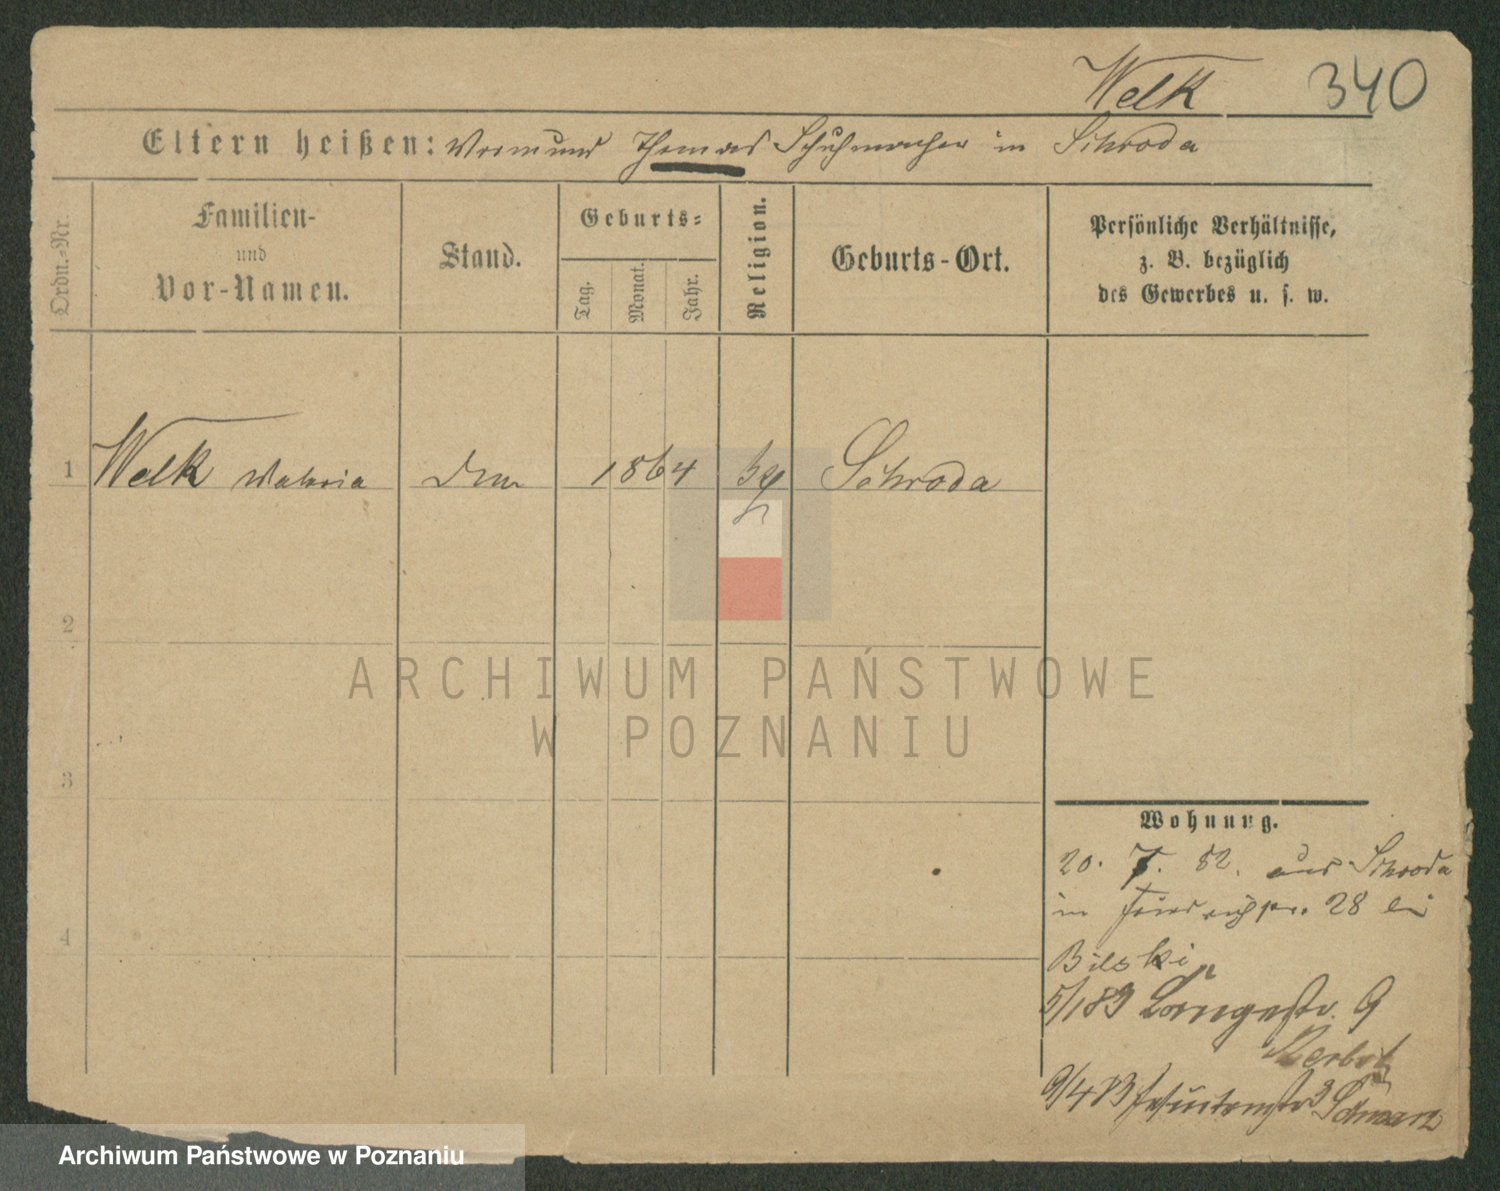 Welk 340
Eltern heißen: Vormund Thomas Schuhmacher in Schroda
Ordn.-Nr.
Familien-
und
Vor-Namen.
Stand.
Geburts-
Tag.
Monat.
Jahr.
Religion.
Geburts-Ort.
Persönliche Verhältnisse,
z. B. bezüglich
des Gewerbes u. s. w.
1 Welk 1864 Schroda
2
3
4
Wohnung.
20. 7. 82. aus Schroda
in 28 bei
Bilski
5/1 83 Langestr. 9
9/4 83 3 Schwarz
ARCHIWUM PAŃSTWOWE
W POZNANIU
Archiwum Państwowe w Poznaniu